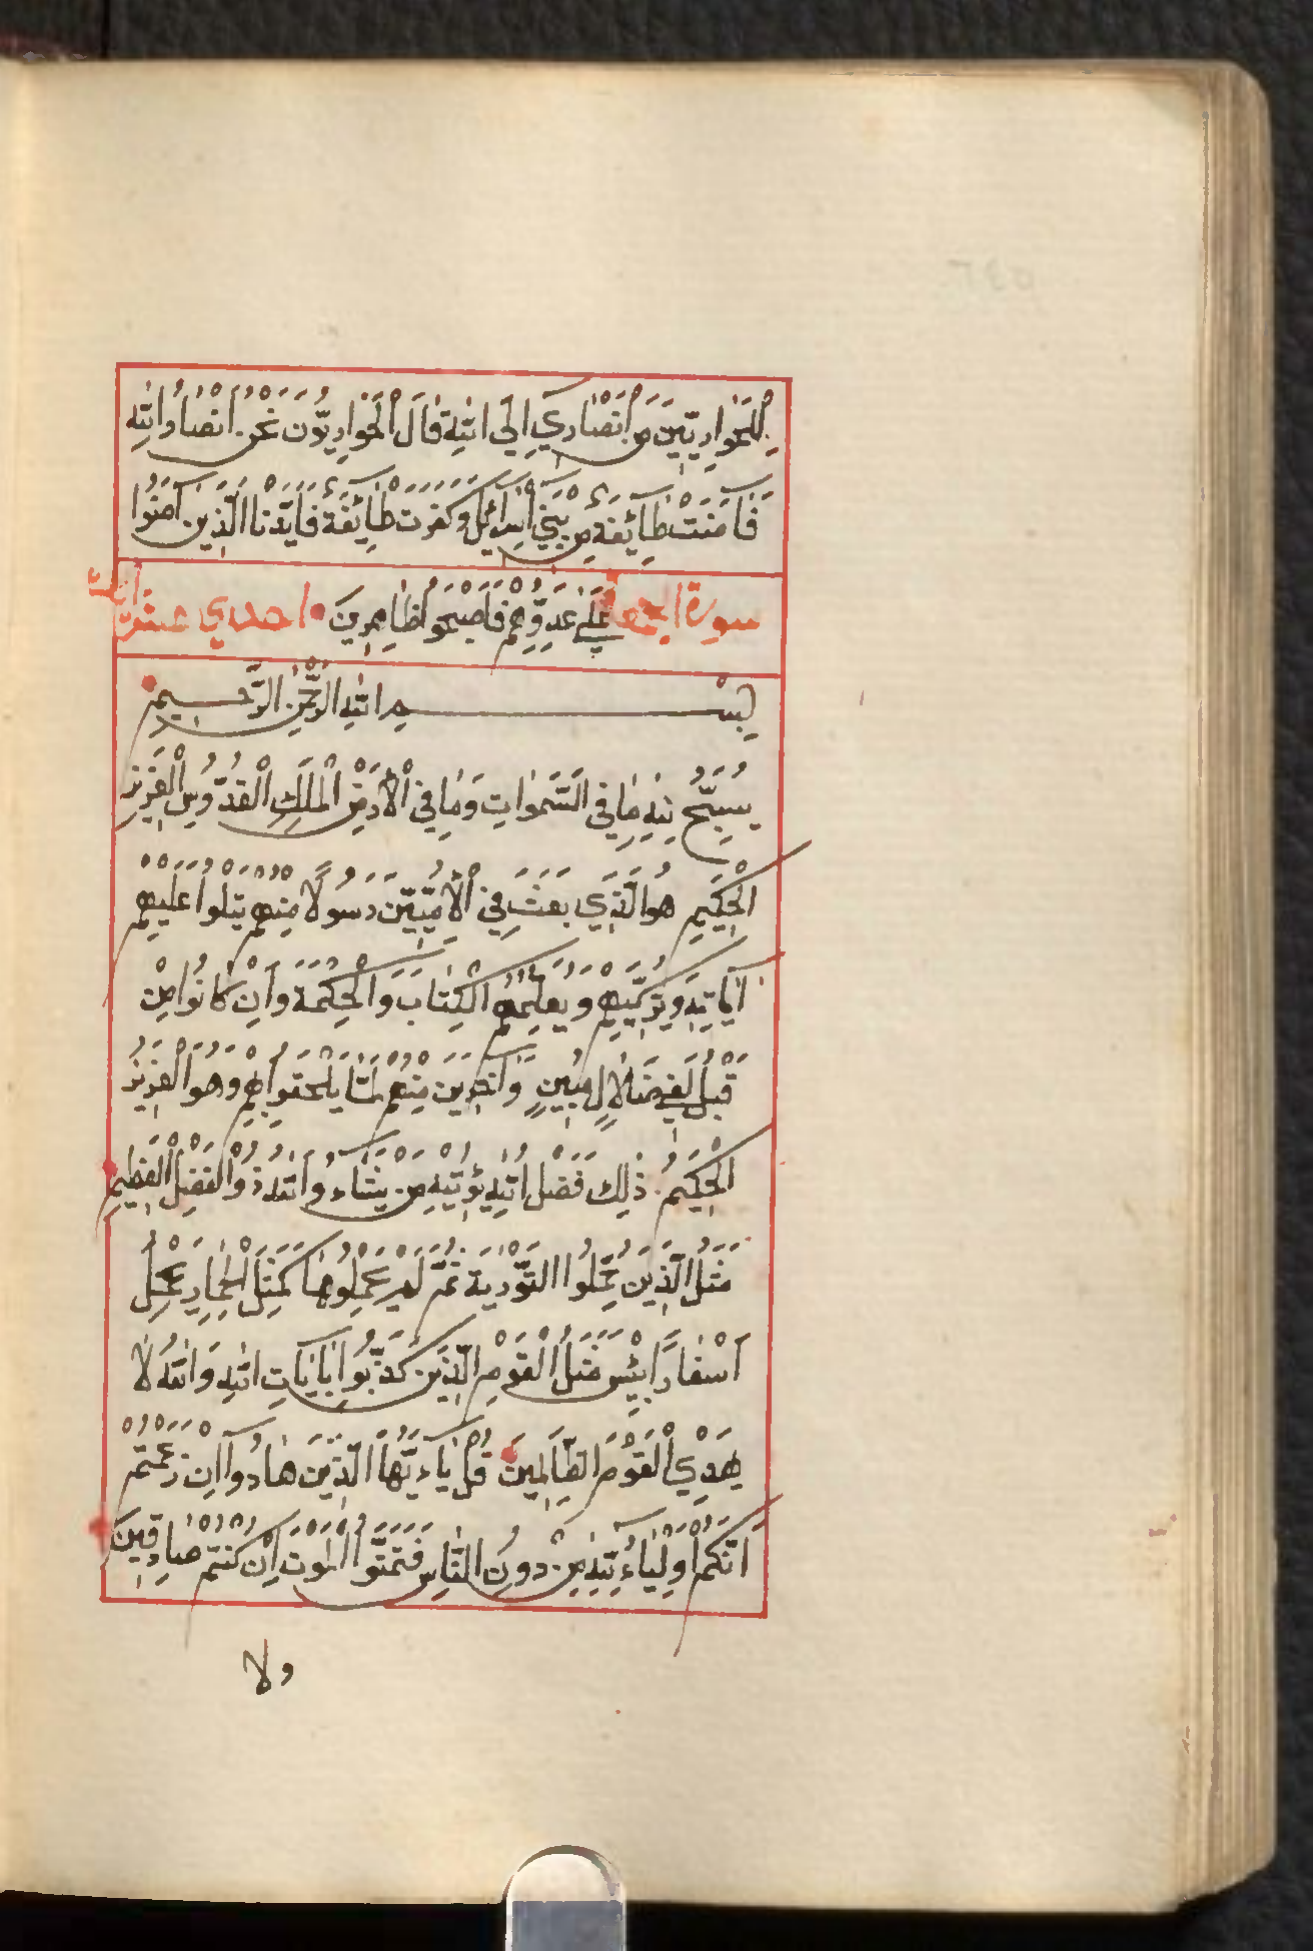 لِلْحَوَارِيّٖينَ مَنْ اَنْصَارٖي اِلَي اللّٰهِ قَالَ الْحَوَارِيُّونَ نَحْنُ اَنْصَارُ اللّٰهِ
فَاٰمَنَتْ طَايِٕفَةٌ مِنْ بَنٖي اِسْرَائٖلَ وَكَفَرَتْ طَايِٕفَةٌ فَاَيَّدْنَا الَّذٖينَ اٰمَنُوا
سورة الجمعة عَلٰي عَدُوِّهِمْ فَاَصْبَحُوا ظَاهِرٖينَ احدي عشر ايت
بِسْمِ اللّٰهِ الرَّحْمٰنِ الرَّحٖيمِ
يُسَبِّحُ لِلّٰهِ مَا فِي السَّمٰوَاتِ وَمَا فِي الْاَرْضِ الْمَلِكِ الْقُدُّوسِ الْعَزٖيزِ
الْحَكٖيمِ هُوَ الَّذٖي بَعَثَ فِي الْاُمِّيّٖينَ رَسُولًا مِنْهُمْ يَتْلُوا عَلَيْهِمْ
اٰيَاتِهٖ وَيُزَكّٖيهِمْ وَيُعَلِّمُهُمُ الْكِتَابَ وَالْحِكْمَةَ وَاِنْ كَانُوا مِنْ
قَبْلُ لَفٖي ضَلَالٍ مُبٖينٍ وَاٰخَرٖينَ مِنْهُمْ لَمَّا يَلْحَقُوا بِهِمْ وَهُوَ الْعَزٖيزُ
الْحَكٖيمُ ذٰلِكَ فَضْلُ اللّٰهِ يُؤْتٖيهِ مَنْ يَشَاءُ وَاللّٰهُ ذُو الْفَضْلِ الْعَظٖيمِ
مَثَلُ الَّذٖينَ حُمِّلُوا التَّوْرٰيةَ ثُمَّ لَمْ يَحْمِلُوهَا كَمَثَلِ الْحِمَارِ يَحْمِلُ
اَسْفَارًا بِئْسَ مَثَلُ الْقَوْمِ الَّذٖينَ كَذَّبُوا بِاٰيَاتِ اللّٰهِ وَاللّٰهُ لَا
يَهْدِي الْقَوْمَ الظَّالِمٖينَ قُلْ يَاءَيُّهَا الَّذٖينَ هَادُوا اِنْ زَعَمْتُمْ
اَنَّكُمْ اَوْلِيَاءُ لِلّٰهِ مِنْ دُونِ النَّاسِ فَتَمَنَّوُا الْمَوْتَ اِنْ كُنْتُمْ صَادِقٖينَ
ولا